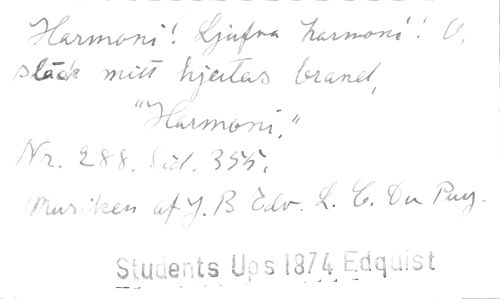 Harmoni! Ljufva harmoni! O,
släck mitt hjertas brand,
"Harmoni."
Nr. 288. Sid. 355.
Musiken af J. B Edv. L. C. Du Puy.
Students Ups 1874 Edquist